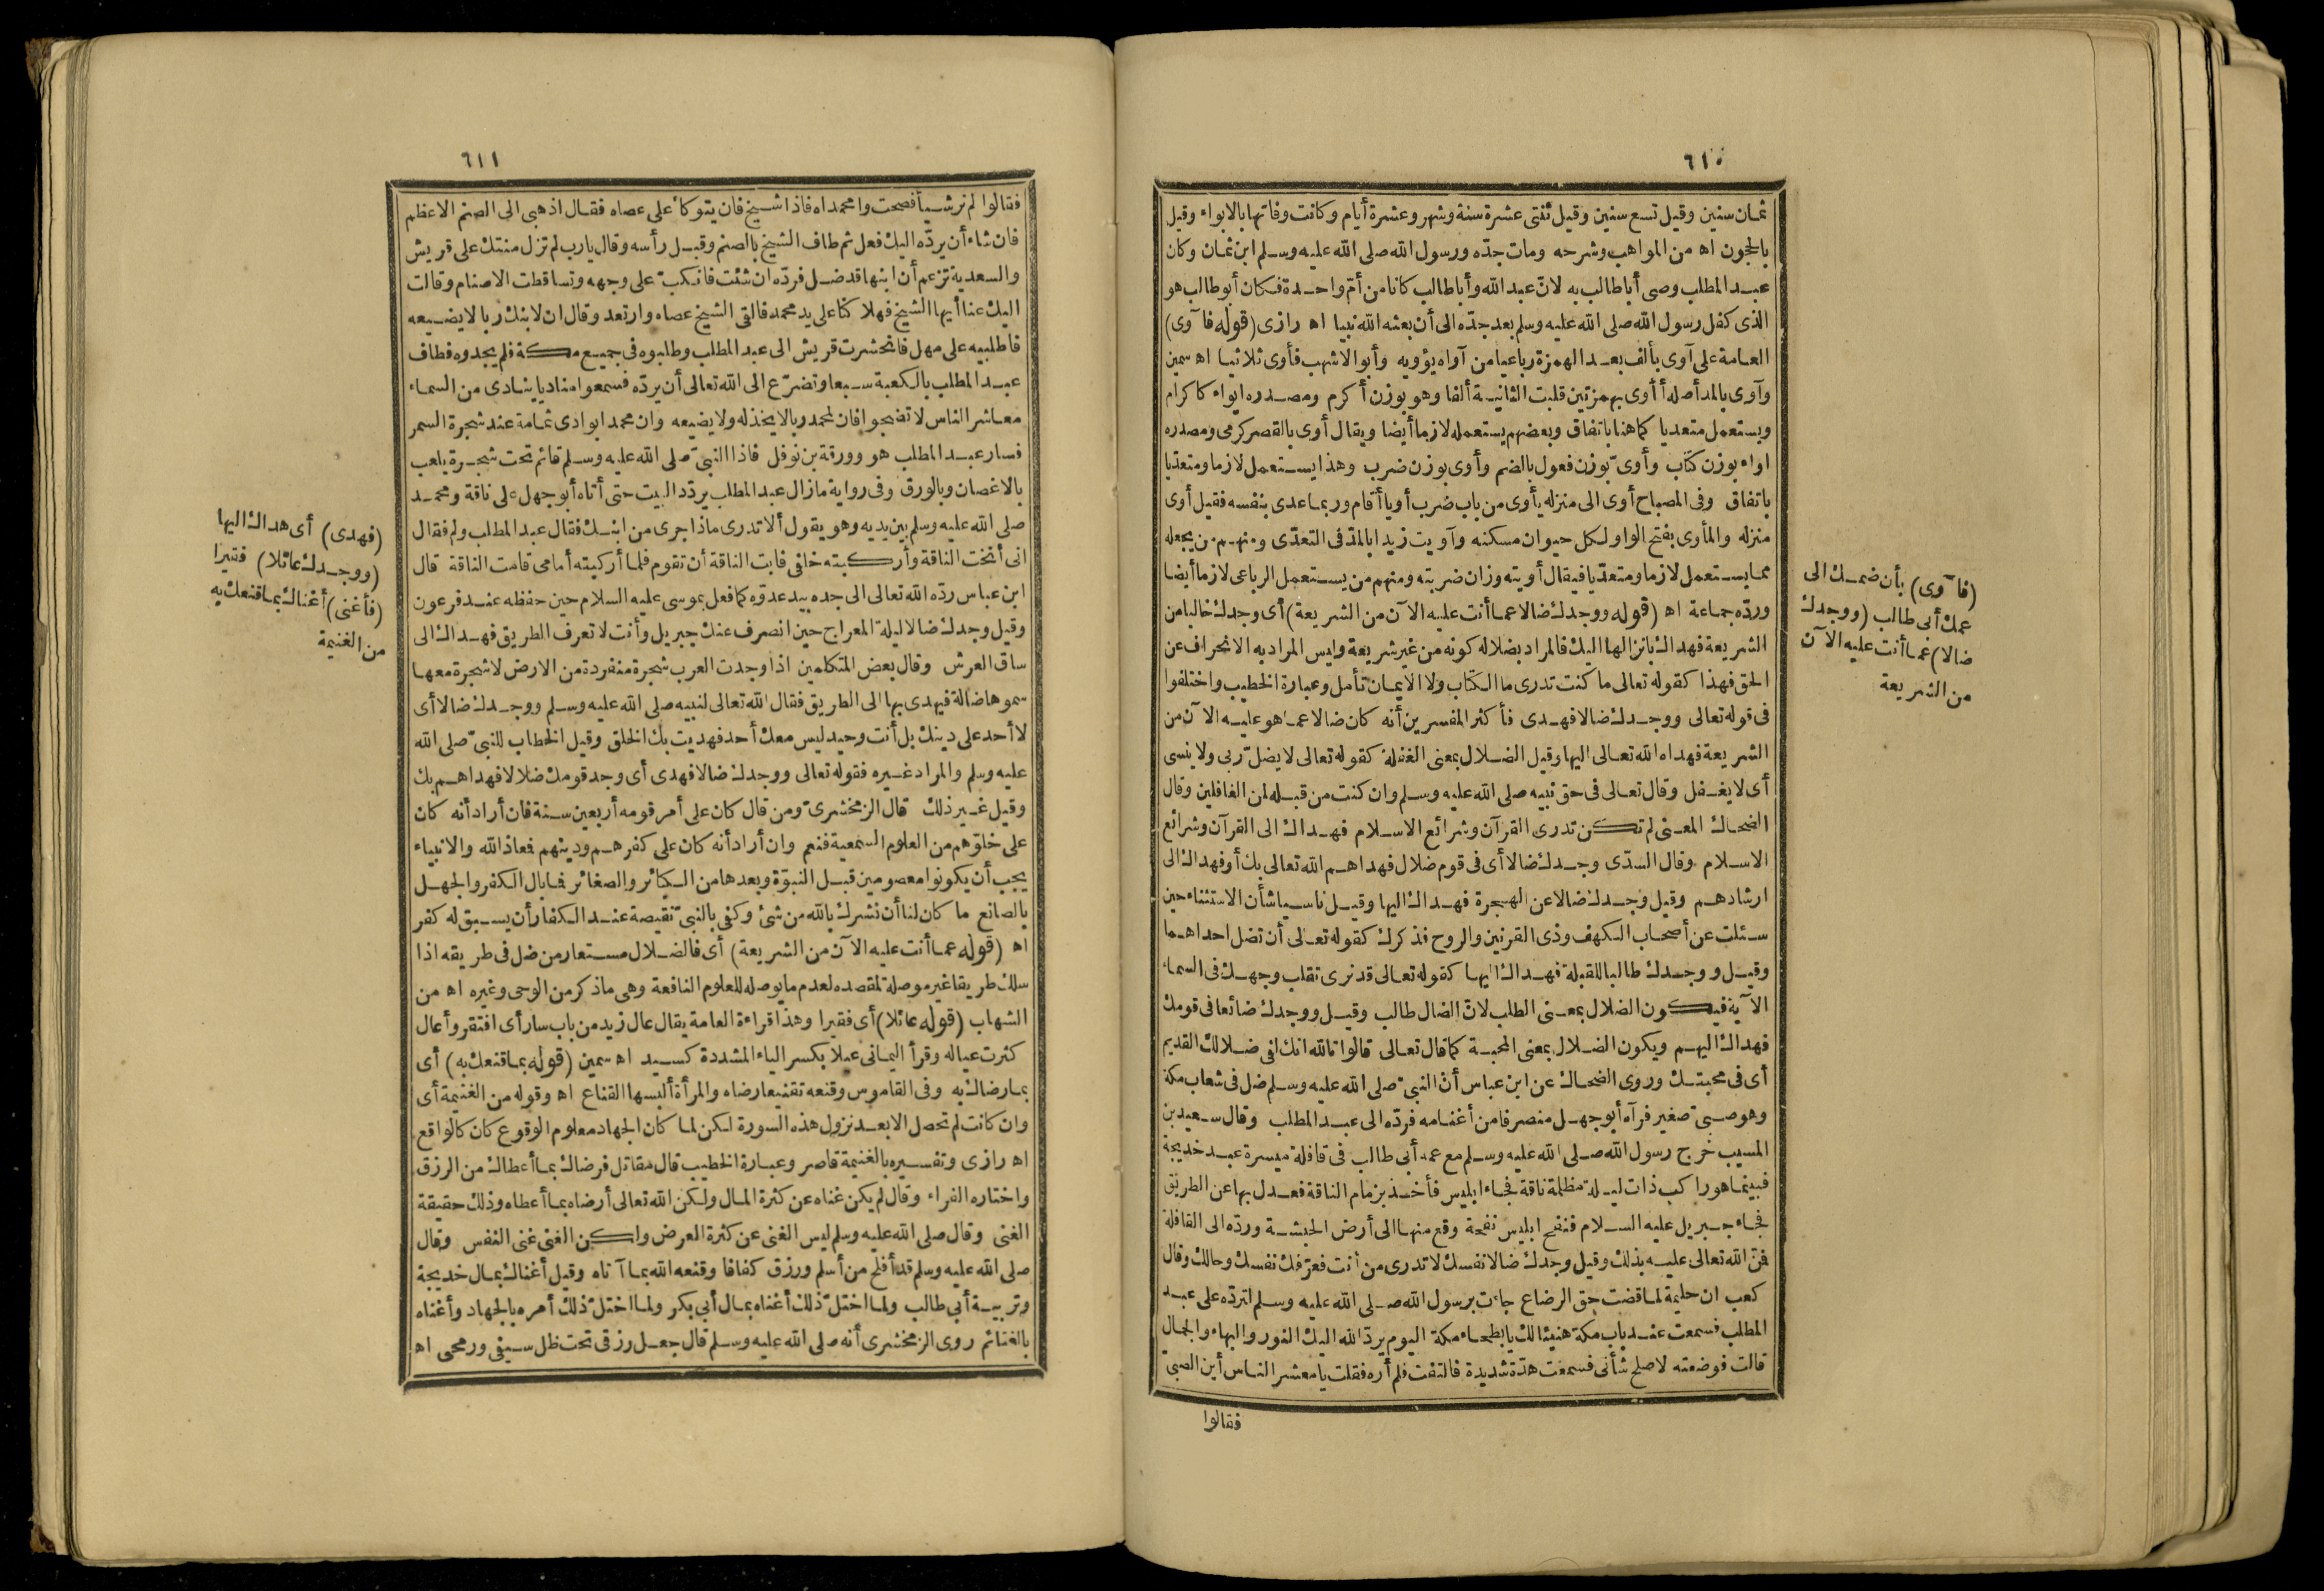 ٦١٠
ثمان سنين وقيل تسع سنين وقيل ثنتى عشرة سنة وشهر وعشرة أيام وكانت وفاتها بالابواء وقيل
بالحجون اه من المواهب وشرحه ومات جدّه ورسول الله صلى الله عليه وسلم ابن ثمان وكان
عبد المطلب وصى أبا طالب به لانّ عبد الله وأبا طالب كانا من أمّ واحدة فكان أبو طالب هو
الذى كفل رسول الله صلى الله عليه وسلم بعد جدّه الى أن بعثه الله نبيا اه رازى (قوله فا آوى)
العامة على آوى بألف بعد الهمزة رباعيا من آواه يؤويه وأبو الاشهب فأوى ثلاثيا اه سمين
وآوى بالمد أصله أأوى بهمزتين قلبت الثانية ألفا وهو بوزن أكرم ومصدره ايواء كاكرام
ويستعمل متعديا كما هنا باتفاق وبعضهم يستعمله لازما أيضا ويقال أوى بالقصر كرمى ومصدره
اواء بوزن كتاب وأوىّ بوزن فعول بالضم وأوى بوزن ضرب وهذا يستعمل لازما ومتعدّيا
باتفاق وفى المصباح أوى الى منزله يأوى من باب ضرب أويا أقام وربما عدى بنفسه فقيل أوى
منزله والمأوى بفتح الواو لكل حيوان مسكنه وآويت زيدا بالمدّ فى التعدّى ومنهم من يجعله
مما يستعمل لازما ومتعدّيا فيقال أويته وزان ضربته ومنهم من يستعمل الرباعى لازما أيضا
وردّه جماعة اه (قوله ووجدك ضالا عما أنت عليه الآن من الشريعة) أى وجدك خاليا من
الشريعة فهداك بانزالها اليك فالمراد بضلاله كونه من غير شريعة وليس المراد به الانحراف عن
الحق فهذا كقوله تعالى ما كنت تدرى ما الكتاب ولا الايمان تأمل وعبارة الخطيب واختلفوا
فى قوله تعالى ووجدك ضالا فهدى فأكثر المفسرين أنه كان ضالا عما هو عليه الآن من
الشريعة فهداه الله تعالى اليها وقيل الضلال بمعنى الغفلة كقوله تعالى لا يضل ربى ولا ينسى
أى لا يغفل وقال تعالى فى حق نبيه صلى الله عليه وسلم وان كنت من قبله لمن الغافلين وقال
الضحاك المعنى لم تكن تدرى القرآن وشرائع الاسلام فهداك الى القرآن وشرائع
الاسلام وقال السدّى وجدك ضالا أى فى قوم ضلال فهداهم الله تعالى بك أو فهداك الى
ارشادهم وقيل وجدك ضالا عن الهجرة فهداك اليها وقيل ناسيا شأن الاستثناء حين
سئلت عن أصحاب الكهف وذى القرنين والروح فذكرك كقوله تعالى أن تضل احداهما
وقيل ووجدك طالبا للقبلة فهداك اليها كقوله تعالى قد نرى تقلب وجهك فى السماء
الآية فيكون الضلال بمعنى الطلب لانّ الضال طالب وقيل ووجدك ضائعا فى قومك
فهداك اليهم ويكون الضلال بمعنى المحبة كما قال تعالى قالوا تالله انك لفى ضلالك القديم
أى فى محبتك وروى الضحاك عن ابن عباس أنّ النبىّ صلى الله عليه وسلم ضل فى شعاب مكة
وهو صبىّ صغير فرآه أبو جهل منصرفا من أغنامه فردّه الى عبد المطلب وقال سعيد بن
المسيب خرج رسول الله صلى الله عليه وسلم مع عمه أبى طالب فى قافلة ميسرة عبد خديجة
فبينما هو راكب ذات ليلة مظلمة ناقة فجاء ابليس فأخذ بزمام الناقة فعدل بها عن الطريق
فجاء جبريل عليه السلام فنفخ ابليس نفخة وقع منها الى أرض الحبشة وردّه الى القافلة
فمنّ الله تعالى عليه بذلك وقيل وجدك ضالا نفسك لا تدرى من أنت فعرّفك نفسك وحالك وقال
كعب ان حليمة لما قضت حق الرضاع جاءت برسول الله صلى الله عليه وسلم لتردّه على عبد
المطلب فسمعت عند باب مكة هنيئا لك يا بطحاء مكة اليوم يردّ الله اليك النور والبهاء والجمال
قالت فوضعته لاصلح شأنى فسمعت هدّة شديدة فالتفت فلم أره فقلت يا معشر الناس أين الصبىّ
فقالوا
(فا آوى) بأن ضمك الى
عمك أبى طالب (ووجدك
ضالا) عما أنت عليه الآن
من الشريعة
٦١١
فقالوا لم نر شيأ فصحت وامحمداه فاذا شيخ فان يتوكأ على عصاه فقال اذهبى الى الصنم الاعظم
فان شاء أن يردّه اليك فعل ثم طاف الشيخ بالصنم وقبل رأسه وقال يارب لم تزل منتك على قريش
والسعدية تزعم أن ابنها قد ضل فردّه ان شئت فانكبّ على وجهه وتساقطت الاصنام وقالت
اليك عنا أيها الشيخ فهلا كنا على يد محمد فالقى الشيخ عصاه وارتعد وقال ان لابنك ربا لا يضيعه
فاطلبيه على مهل فانحشرت قريش الى عبد المطلب وطلبوه فى جميع مكة فلم يجدوه فطاف
عبد المطلب بالكعبة سبعا وتضرّع الى الله تعالى أن يردّه فسمعوا مناديا ينادى من السماء
معاشر الناس لا تضجوا فان لمحمد ربا لا يخذله ولا يضيعه وان محمدا بوادى تهامة عند شجرة السمر
فسار عبد المطلب هو وورقة بن نوفل فاذا النبىّ صلى الله عليه وسلم قائم تحت شجرة يلعب
بالاغصان وبالورق وفى رواية مازال عبد المطلب يردّد البيت حتى أتاه أبو جهل على ناقة ومحمد
صلى الله عليه وسلم بين يديه وهو يقول ألا تدرى ماذا جرى من ابنك فقال عبد المطلب ولم فقال
انى أنخت الناقة وأركبته خلفى فابت الناقة أن تقوم فلما أركبته أمامى قامت الناقة قال
ابن عباس ردّه الله تعالى الى جده بيد عدوّه كما فعل بموسى عليه السلام حين حفظه عند فرعون
وقيل وجدك ضالا ليلة المعراج حين انصرف عنك جبريل وأنت لا تعرف الطريق فهداك الى
ساق العرش وقال بعض المتكلمين اذا وجدت العرب شجرة منفردة من الارض لا شجرة معها
سموها ضالة فيهدى بها الى الطريق فقال الله تعالى لنبيه صلى الله عليه وسلم ووجدك ضالا أى
لا أحد على دينك بل أنت وحيد ليس معك أحد فهديت بك الخلق وقيل الخطاب للنبىّ صلى الله
عليه وسلم والمراد غيره فقوله تعالى ووجدك ضالا فهدى أى وجد قومك ضلالا فهداهم بك
وقيل غير ذلك قال الزمخشرىّ ومن قال كان على أمر قومه أربعين سنة فان أراد أنه كان
على خلوّهم من العلوم السمعية فنعم وان أراد أنه كان على كفرهم ودينهم فعاذ الله والانبياء
يجب أن يكونوا معصومين قبل النبوّة وبعدها من الكبائر والصغائر فما بال الكفر والجهل
بالصانع ما كان لنا أن نشرك بالله من شئ وكفى بالنبىّ نقيصة عند الكفار أن يسبق له كفر
اه (قوله عما أنت عليه الآن من الشريعة) أى فالضلال مستعار من ضل فى طريقه اذا
سلك طريقا غير موصلة لمقصده لعدم ما يوصله للعلوم النافعة وهى ماذكر من الوحى وغيره اه من
الشهاب (قوله عائلا) أى فقيرا وهذا قراءة العامة يقال عال زيد من باب سار أى افتقر وأعال
كثرت عياله وقرأ اليمانى عيلا بكسر الياء المشددة كسيد اه سمين (قوله بما قنعك به) أى
بما رضاك به وفى القاموس وقنعه تقنيعا رضاه والمرأة ألبسها القناع اه وقوله من الغنيمة أى
وان كانت لم تحصل الا بعد نزول هذه السورة لكن لما كان الجهاد معلوم الوقوع كان كالواقع
اه رازى وتفسيره بالغنيمة قاصر وعبارة الخطيب قال مقاتل فرضاك بما أعطاك من الرزق
واختاره الفراء وقال لم يكن غناه عن كثرة المال ولكن الله تعالى أرضاه بما أعطاه وذلك حقيقة
الغنى وقال صلى الله عليه وسلم ليس الغنى عن كثرة العرض ولكن الغنى غنى النفس وقال
صلى الله عليه وسلم قد أفلح من أسلم ورزق كفافا وقنعه الله بما آتاه وقيل أغناك بمال خديجة
وتربية أبى طالب ولما اختلّ ذلك أغناه بمال أبى بكر ولما اختلّ ذلك أمره بالجهاد وأغناه
بالغنائم روى الزمخشرى أنه صلى الله عليه وسلم قال جعل رزقى تحت ظل سيفى ورمحى اه
(فهدى) أى هداك اليها
(ووجدك عائلا) فقيرا
(فأغنى) أغناك بما قنعك به
من الغنيمة